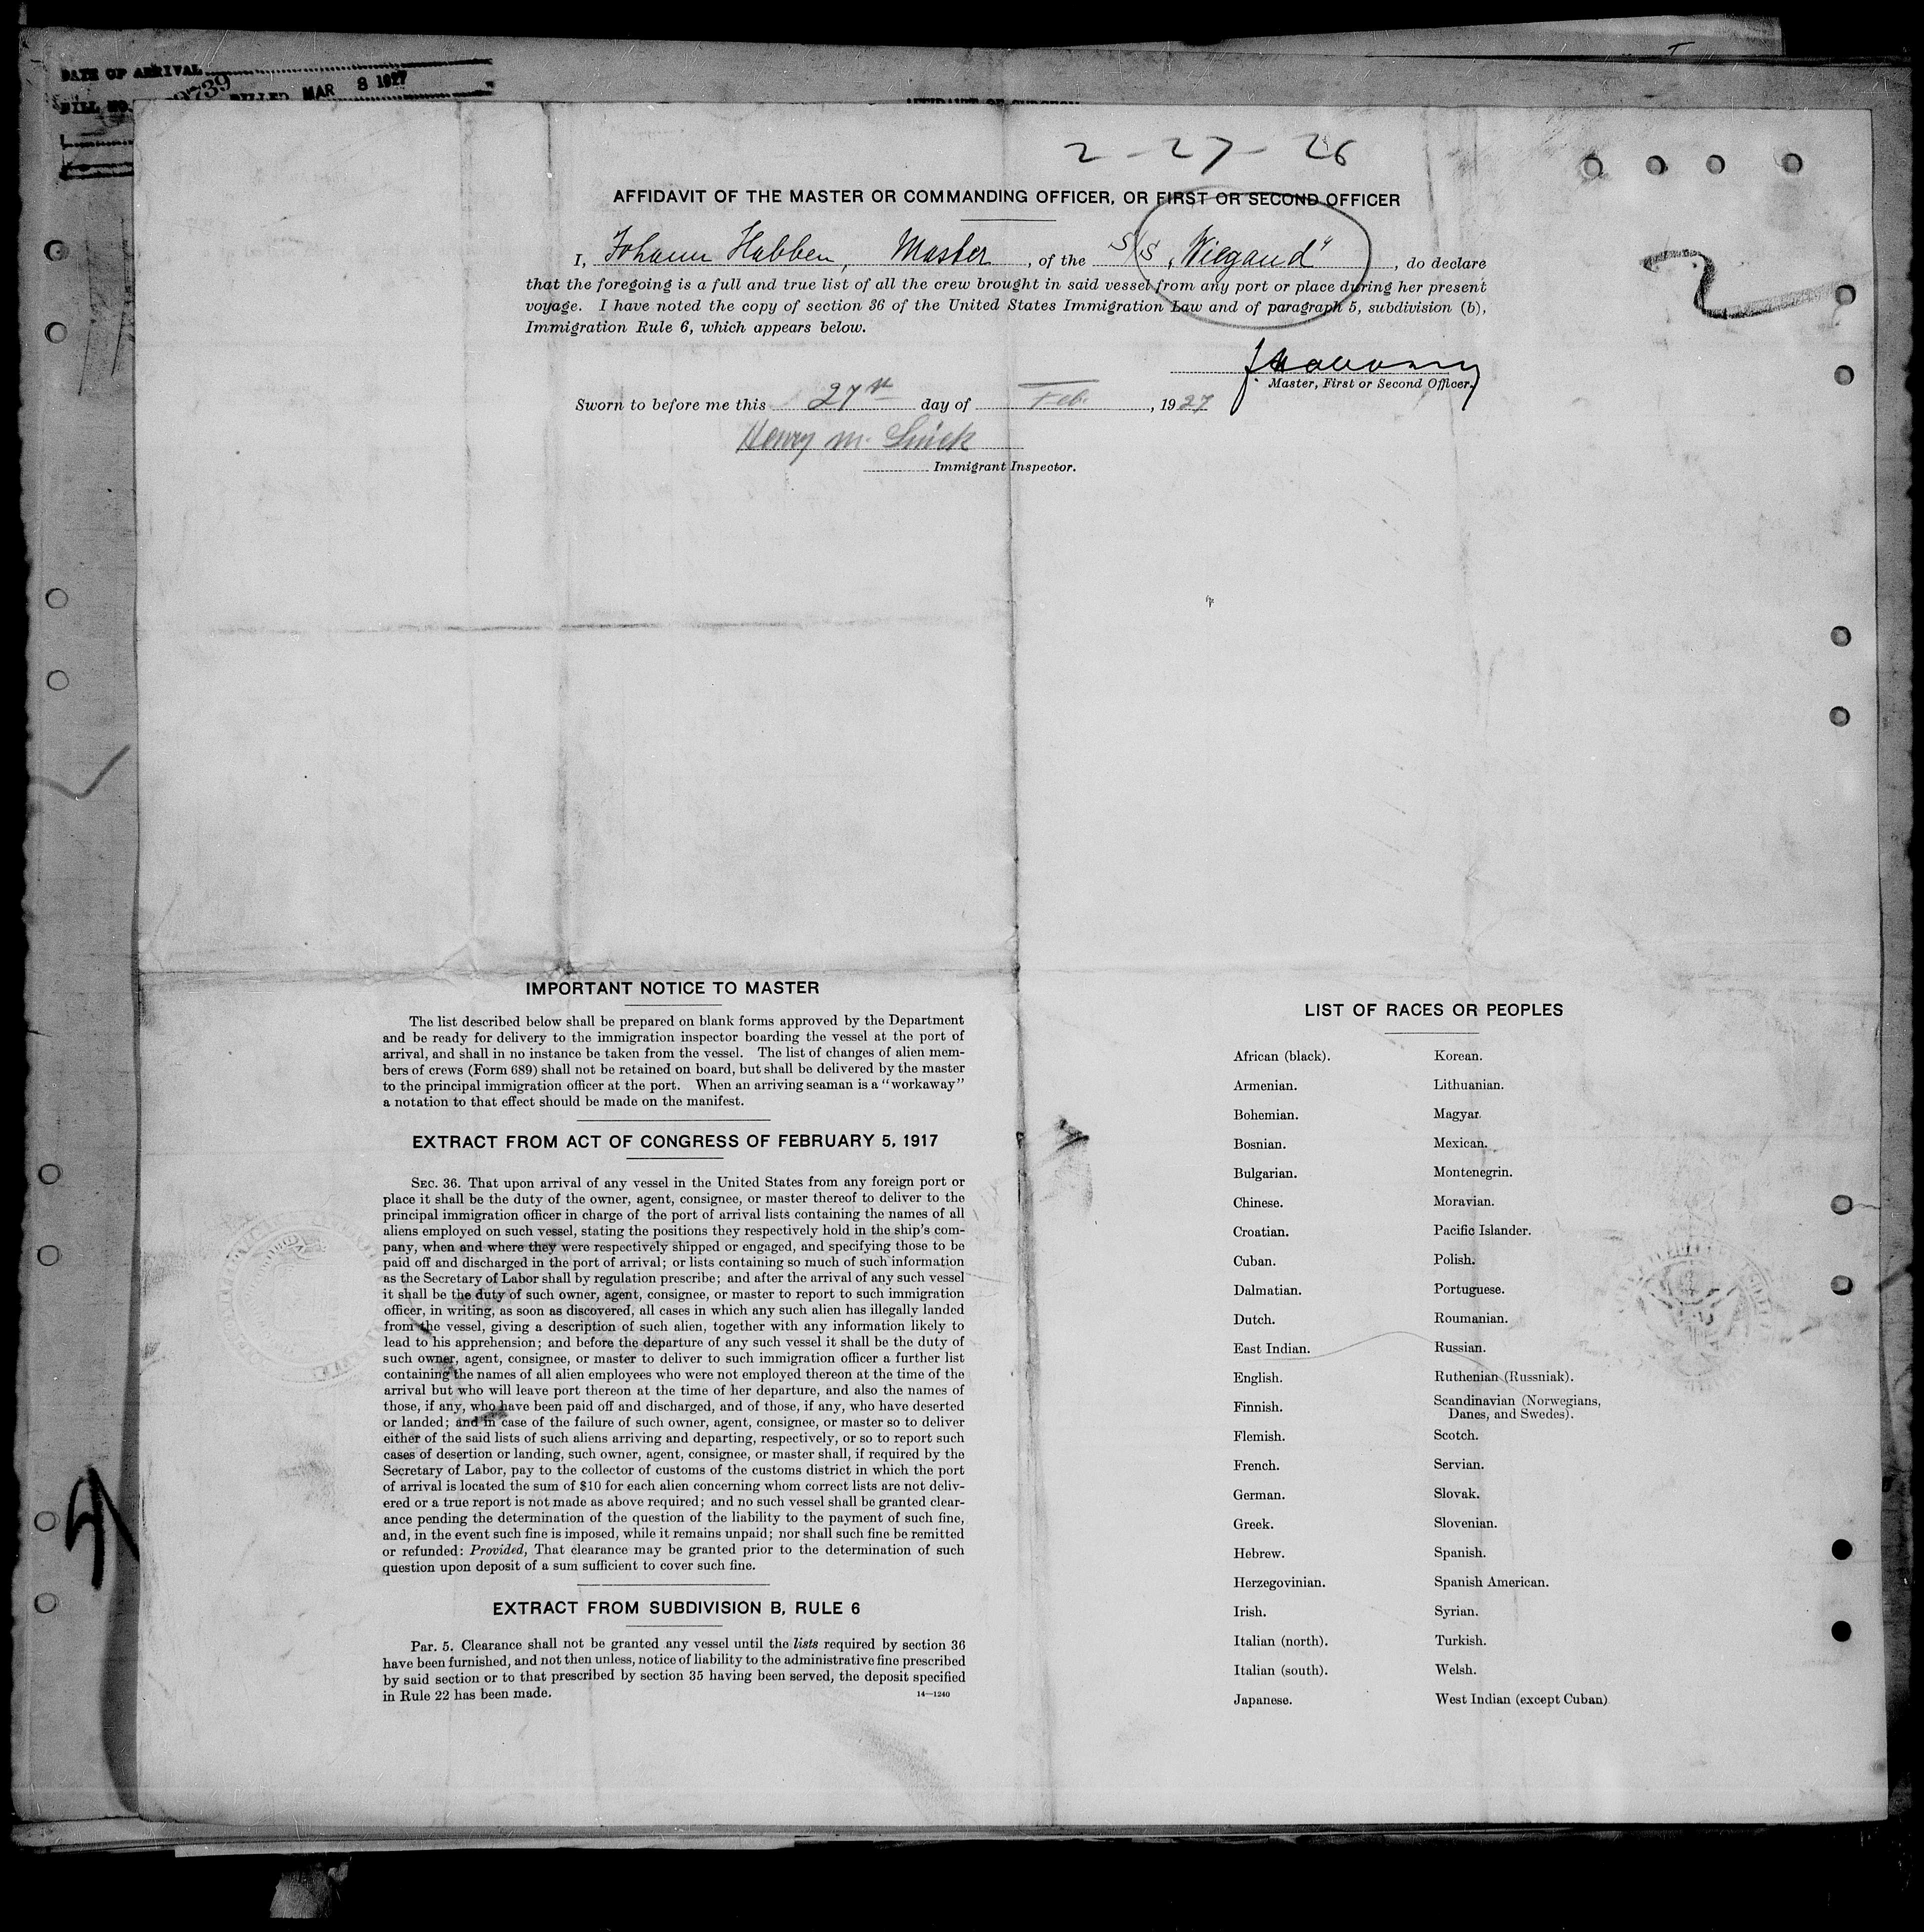 DATE OF ARRIVAL
BILL NO. 9739 BILLED MAR 8 1927
2-27-26
AFFIDAVIT OF THE MASTER OR COMMANDING OFFICER, OR FIRST OR SECOND OFFICER
I, Johann Habben, Master, of the S/S „Wiegand“, do declare
that the foregoing is a full and true list of all the crew brought in said vessel from any port or place during her present
voyage. I have noted the copy of section 36 of the United States Immigration Law and of paragraph 5, subdivision (b),
Immigration Rule 6, which appears below.
2
Master, First or Second Officer.
Sworn to before me this 27th day of Feb., 1927
Henry M.
Immigrant Inspector.
IMPORTANT NOTICE TO MASTER
The list described below shall be prepared on blank forms approved by the Department
and be ready for delivery to the immigration inspector boarding the vessel at the port of
arrival, and shall in no instance be taken from the vessel. The list of changes of alien mem-
bers of crews (Form 689) shall not be retained on board, but shall be delivered by the master
to the principal immigration officer at the port. When an arriving seaman is a "workaway"
a notation to that effect should be made on the manifest.
EXTRACT FROM ACT OF CONGRESS OF FEBRUARY 5, 1917
SEC. 36. That upon arrival of any vessel in the United States from any foreign port or
place it shall be the duty of the owner, agent, consignee, or master thereof to deliver to the
principal immigration officer in charge of the port of arrival lists containing the names of all
aliens employed on such vessel, stating the positions they respectively hold in the ship's com-
pany, when and where they were respectively shipped or engaged, and specifying those to be
paid off and discharged in the port of arrival; or lists containing so much of such information
as the Secretary of Labor shall by regulation prescribe; and after the arrival of any such vessel
it shall be the duty of such owner, agent, consignee, or master to report to such immigration
officer, in writing, as soon as discovered, all cases in which any such alien has illegally landed
from the vessel, giving a description of such alien, together with any information likely to
lead to his apprehension; and before the departure of any such vessel it shall be the duty of
such owner, agent, consignee, or master to deliver to such immigration officer a further list
containing the names of all alien employees who were not employed thereon at the time of the
arrival but who will leave port thereon at the time of her departure, and also the names of
those, if any, who have been paid off and discharged, and of those, if any, who have deserted
or landed; and in case of the failure of such owner, agent, consignee, or master so to deliver
either of the said lists of such aliens arriving and departing, respectively, or so to report such
cases of desertion or landing, such owner, agent, consignee, or master shall, if required by the
Secretary of Labor, pay to the collector of customs of the customs district in which the port
of arrival is located the sum of $10 for each alien concerning whom correct lists are not deliv-
ered or a true report is not made as above required; and no such vessel shall be granted clear-
ance pending the determination of the question of the liability to the payment of such fine,
and, in the event such fine is imposed, while it remains unpaid; nor shall such fine be remitted
or refunded: Provided, That clearance may be granted prior to the determination of such
question upon deposit of a sum sufficient to cover such fine.
EXTRACT FROM SUBDIVISION B, RULE 6
Par. 5. Clearance shall not be granted any vessel until the lists required by section 36
have been furnished, and not then unless, notice of liability to the administrative fine prescribed
by said section or to that prescribed by section 35 having been served, the deposit specified
in Rule 22 has been made.
14—1240
LIST OF RACES OR PEOPLES
African (black).
Armenian.
Bohemian.
Bosnian.
Bulgarian.
Chinese.
Croatian.
Cuban.
Dalmatian.
Dutch.
East Indian.
English.
Finnish.
Flemish.
French.
German.
Greek.
Hebrew.
Herzegovinian.
Irish.
Italian (north).
Italian (south).
Japanese.
Korean.
Lithuanian.
Magyar.
Mexican.
Montenegrin.
Moravian.
Pacific Islander.
Polish.
Portuguese.
Roumanian.
Russian.
Ruthenian (Russniak).
Scandinavian (Norwegians,
Danes, and Swedes).
Scotch.
Servian.
Slovak.
Slovenian.
Spanish.
Spanish American.
Syrian.
Turkish.
Welsh.
West Indian (except Cuban)